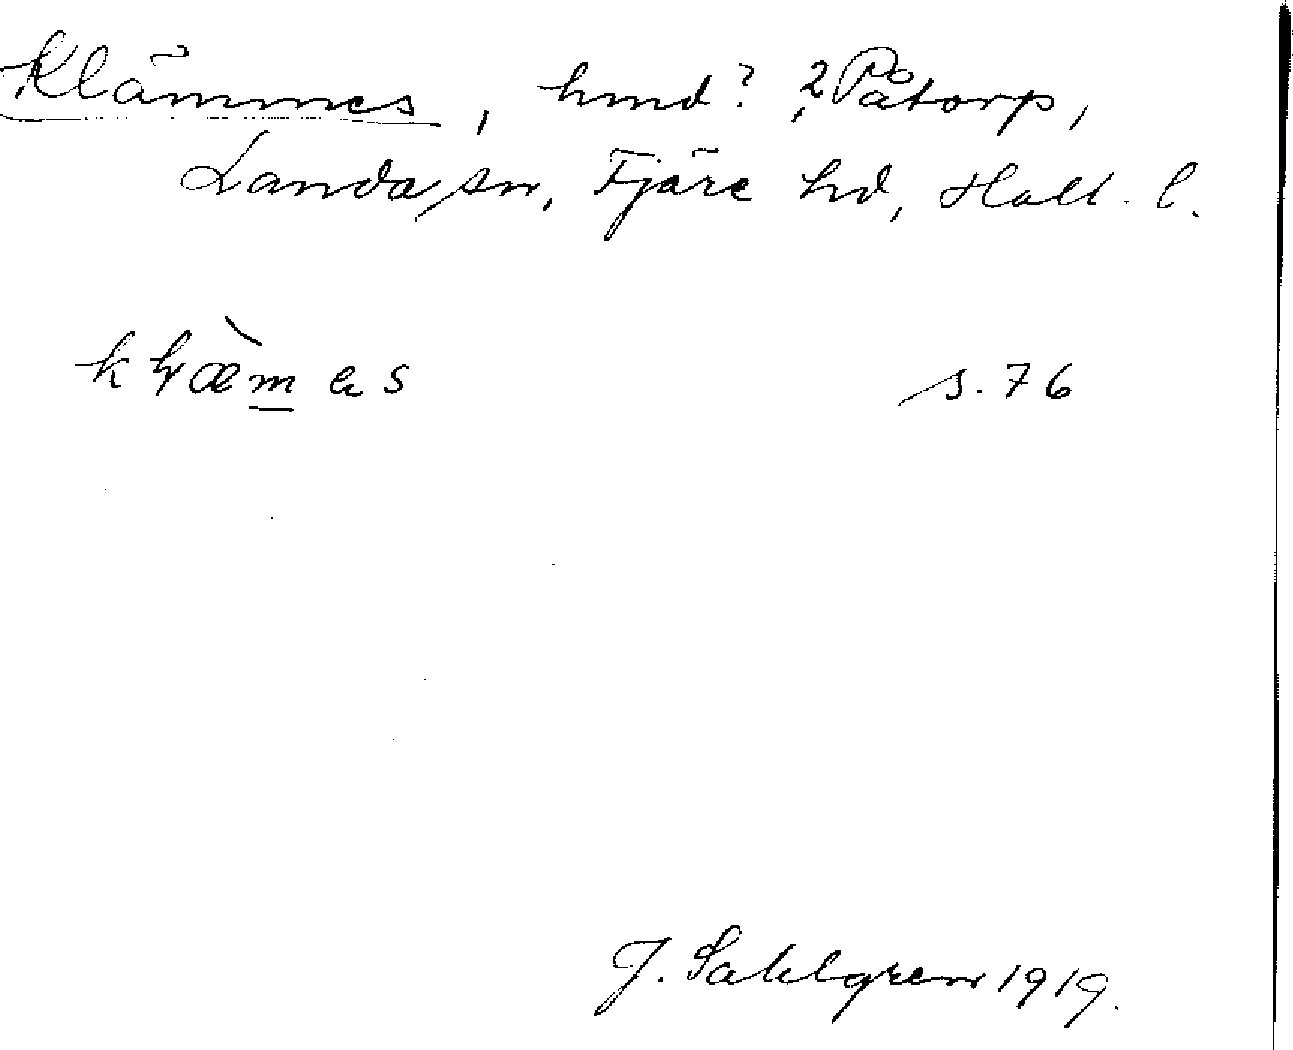 Klämmes, hmd? 2, Påtorp,
Landa sn, Fjäre hd, Hall. l.
kłæ̀m̲es s. 76
J. Sahlgren 1919.